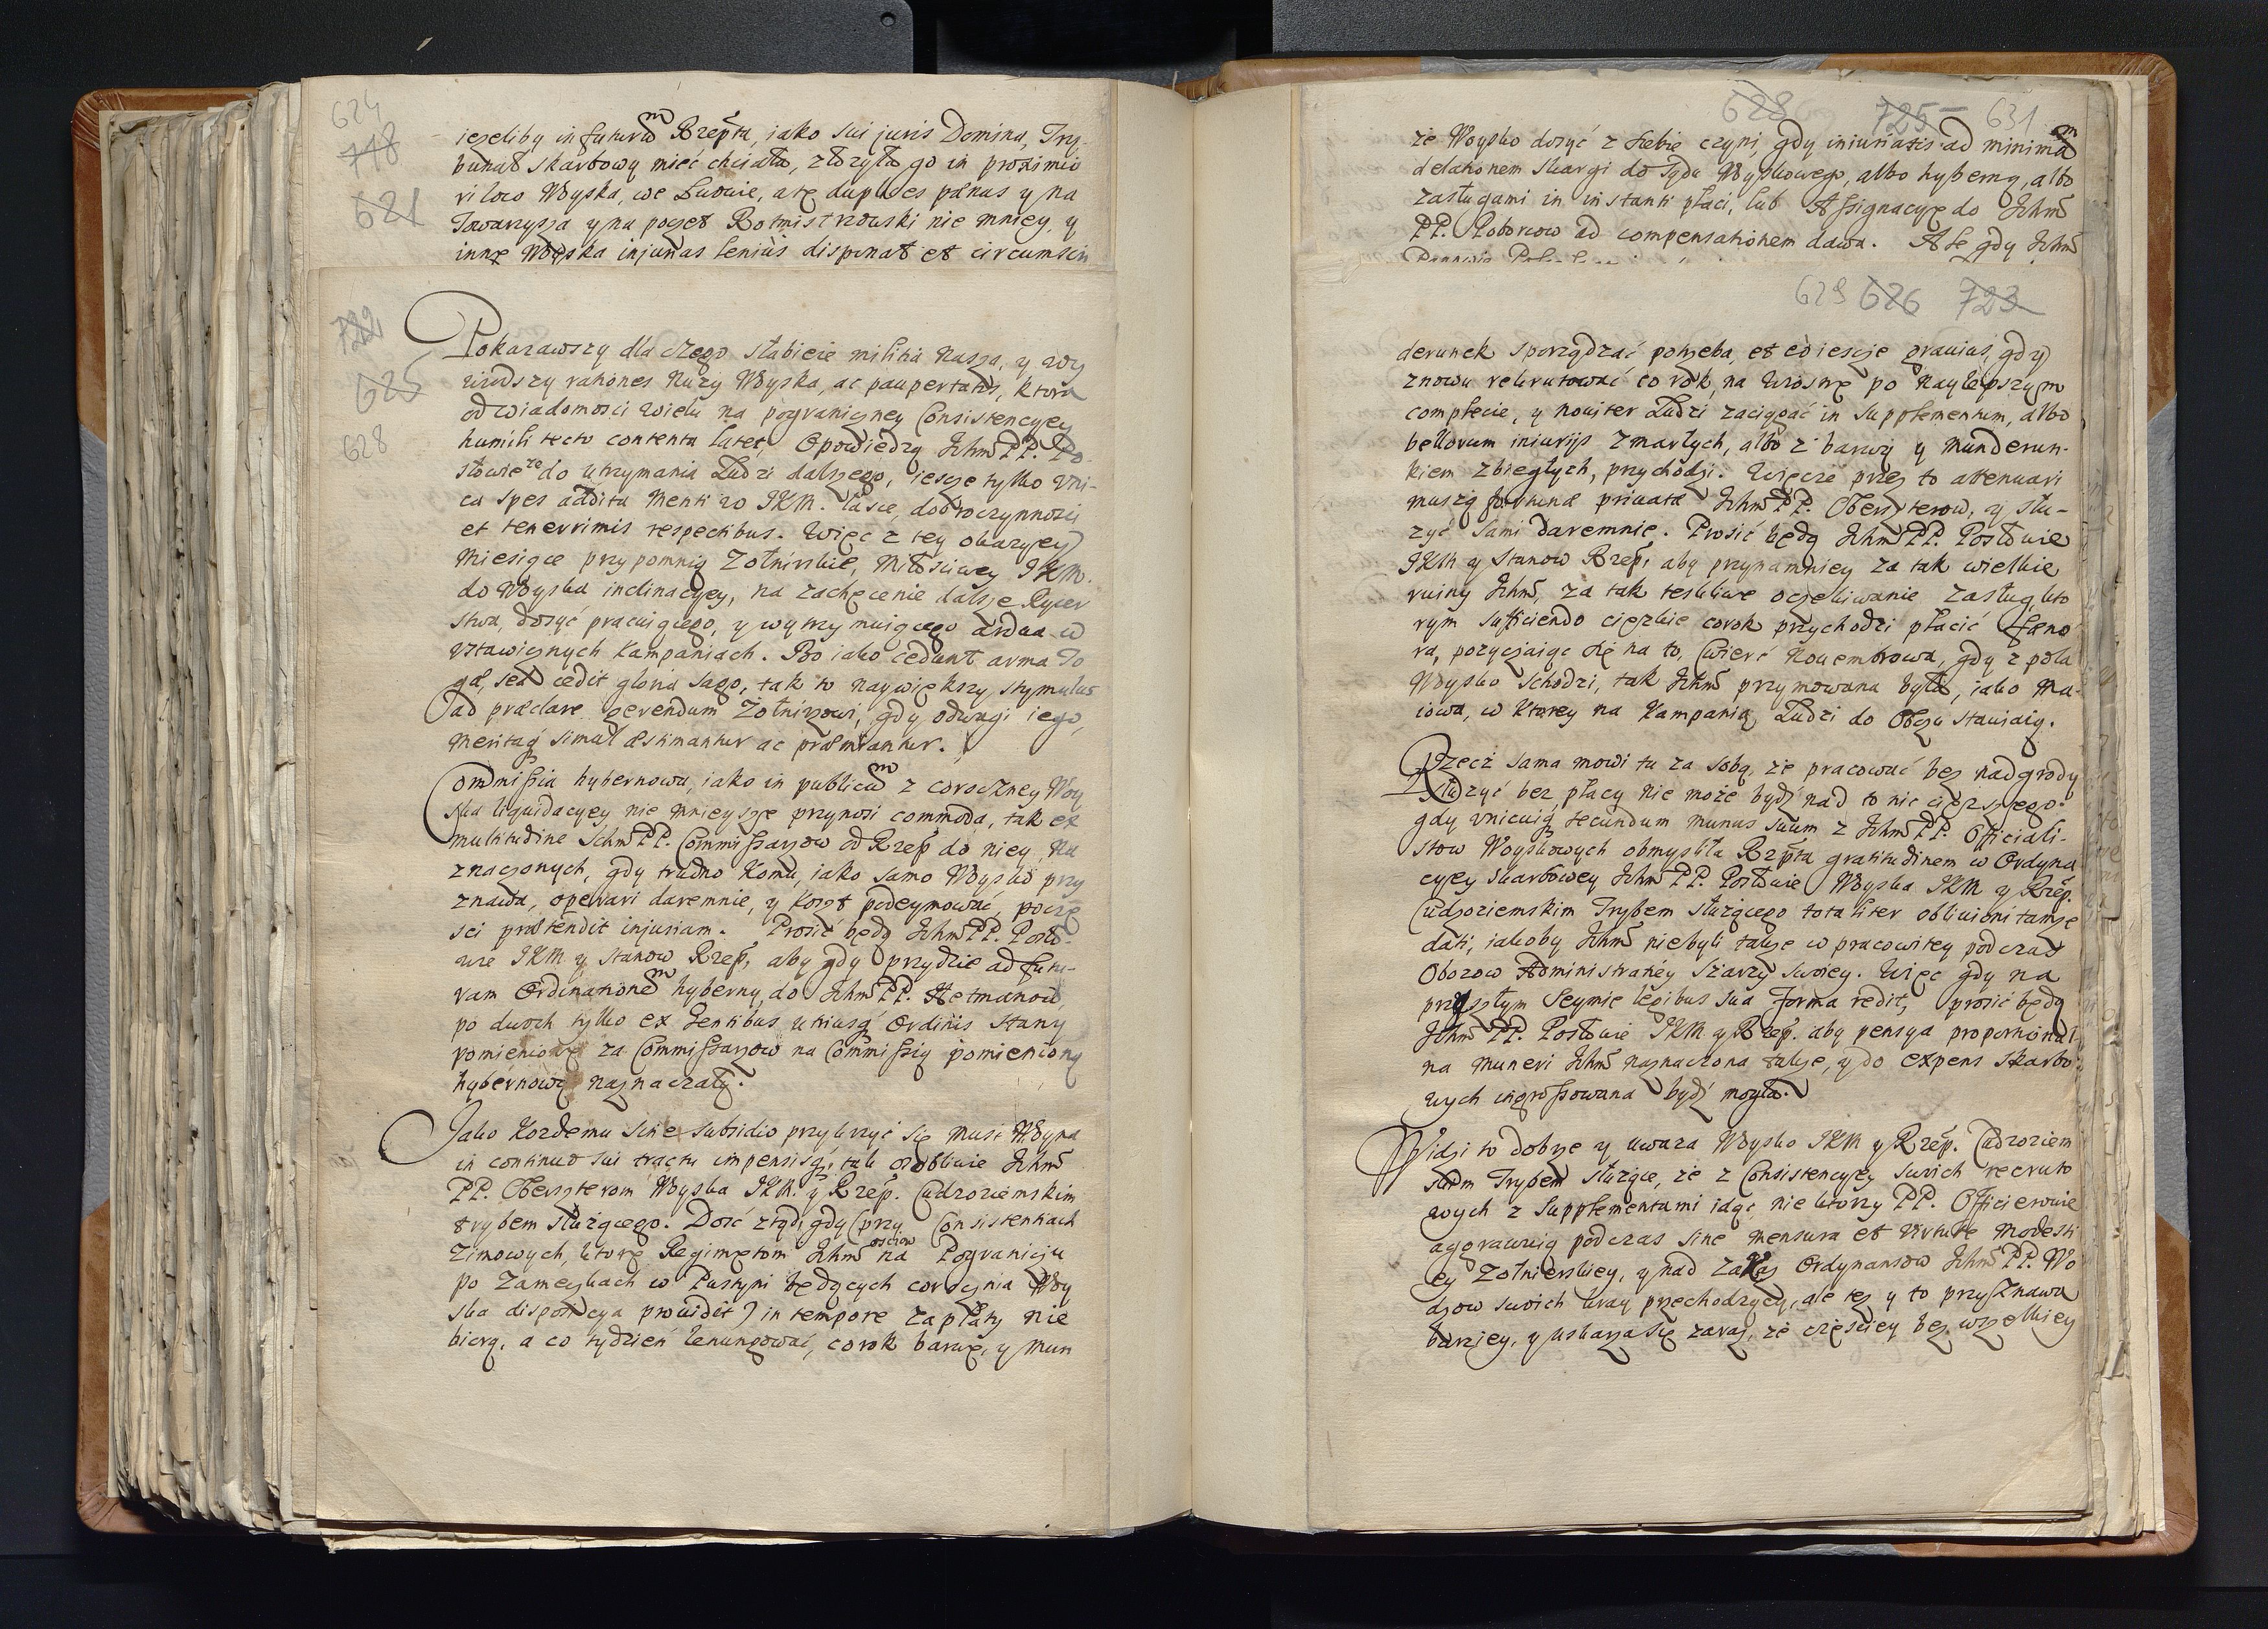 624
718
621
jeżeliby in futurum Rzepta, iako sui juris Domina, Try-
bunał skarbowy mieć chciała, złożyła go in proximio
ri loco Woyska, we Lwowie, aże duplices pænas y na
Towarzysza y na poczet Rotmistrzowski nie mniey, y
inne Woyska injurias lenius disponat et circumscri
722
625
628
Pokazawszy dla czego słabieie militia nasza, y wy
wiodszy rationes nuży Woyska, ac paupertatis, ktora
od wiadomosci wielu na pograniczney Consistencyey
humili tecto contenta latet, Opowiedzą Ichm PP. Po-
słowie że do utrzymania Ludzi dalszego, iescze tylko vni-
ca spes additamenti w JKM. łasce, dobroczynności
et tenerrimis respectibus. Więc z tey okazyey
miesiące przypomnią Zołnirskie, Miłościwey JKM.
do Woyska inclinacyey, na zachęcenie dalsze Rycer
stwa, dosyć pracuiącego, y wytrzymuiącego ardua w
vstawicznych Kampaniach. Bo iako cedunt arma To
gæ, sed cedit gloria sago, tak to naywiększy stymulus
ad præclare gerendum Zołnirzowi, gdy odwagi iego,
meritaq simul æstimantur ac præmiantur.
Commissia hybernowa, iako in publicum z coroczney Woy
ska liquidacyey nie mnieysze przynosi commoda, tak ex
multitudine Ichm PP. Commissarzow od Rzep do niey na
znaczonych, gdy trudno komu, iako samo Woysko przy
znawa, operari daremnie, y koszt podeymować, pocze
sci prætendit injuriam. Prosić będą Ichm PP. Posło-
wie JKM y Stanow Rzep, aby gdy przydzie ad futu-
ram Ordinationem hyberny, do Ichm PP. Hetmanow,
po dwoch tylko ex Gentibus utriusq Ordinis Stany
pomienione za Commissarzow na Commissią pomienioną
hybernową naznaczały.
Jako kozdemu sine subsidio przykrzyć się musi Woyna
in continuo sui tractu impensisq, tak osobliwie Ichm
PP. Oberszterom Woyska JKM. y Rzep. Cudzoziemskim
trybem służącego. Dosć ztąd, gdy (przy Consistentiach
Zimowych, ktore Regimentom Ichmosciow na Pograniczu
po Zameczkach w Pustyni będących coroczna Woy
ska dispozycya prowidit) in tempore zapłaty nie
biorą, a co tydzień lenungować, co rok barwę, y mun
628 725 631
że Woysko dosyć z siebie czyni, gdy iniuriatis ad minimam
delationem skargi do sądu Woyskowego, albo hyberną, albo
zasługami in instanti płaci, lub Assignacye do Ichm
PP. Poborcow ad compensationem dawa. Ale gdy Ichm
629 626 723
derunek sporządzać potrzeba, et eo iescze gravius, gdy
znowu rekrutować co rok, na wiosnę po naylepszym
complecie, y noviter Ludzi zaciągać in supplementum, albo
bellorum iniurijs zmarłych, albo z barwą y munderun-
kiem zbiegłych, przychodzi. Więcże przez to attenuari
muszą fortunæ privatæ Ichm PP. Oberszterow, y słu-
żyć sami daremnie. Prosić będą Ichm PP. Posłowie
JKM y Stanow Rzep, aby przynamniey za tak wielkie
ruiny Ichm, za tak teskliwe oczekiwanie zasług, kto
rym sufficiendo ciężkie corok przychodzi płacić fæno
ra, pozyczaiąc się na to, Cwierć Nouembrowa, gdy z pola
Woysko schodzi, tak Ichm przymowana była, iako Ma-
iowa, w ktorey na Kampanią Ludzi do Obozu stawiaią.
Rzecż sama mowi tu za sobą, że pracować bez nadgrody
służyć bez płacy nie może bydź nad to nic cięższego.
gdy vnicuiq secundum munus suum z Ichm PP. Officiali-
stow Woyskowych obmysliła Rzepta gratitudinem w Ordyna
cyey skarbowey Ichm PP. Posłowie Woyska JKM y Rzep.
Cudzoziemskim Trybem służącego totaliter oblivioni tamże
dati, iakoby Ichm niebyli także w pracowitey podczas
Obozow Administratiey szarży swoiey. Więc gdy na
przyszłym Seymie legibus sua forma redit, prosić będą
Ichm PP. Posłowie JKM y Rzep. aby pensya proportional-
na muneri Ichm naznaczona także, y do expens skarbo-
wych ingrossowana bydź mogła.
Widzi to dobrze y uważa Woysko JKM y Rzep. Cudzoziem
skim Trybem służące, że z Consistencyey swoich recruto
wych z Supplementami idąc niektorzy PP. Officierowie
aggrawuią podczas sine mensura et virtute modesti
ey Zołnierskiey, y nad zakaz Ordynansow Ichm PP. Wo
dzow swoich kray przechodzący, ale też y to przyznawa
barziey, y uskarza się zaraz, że częsciey bez wszelkiey